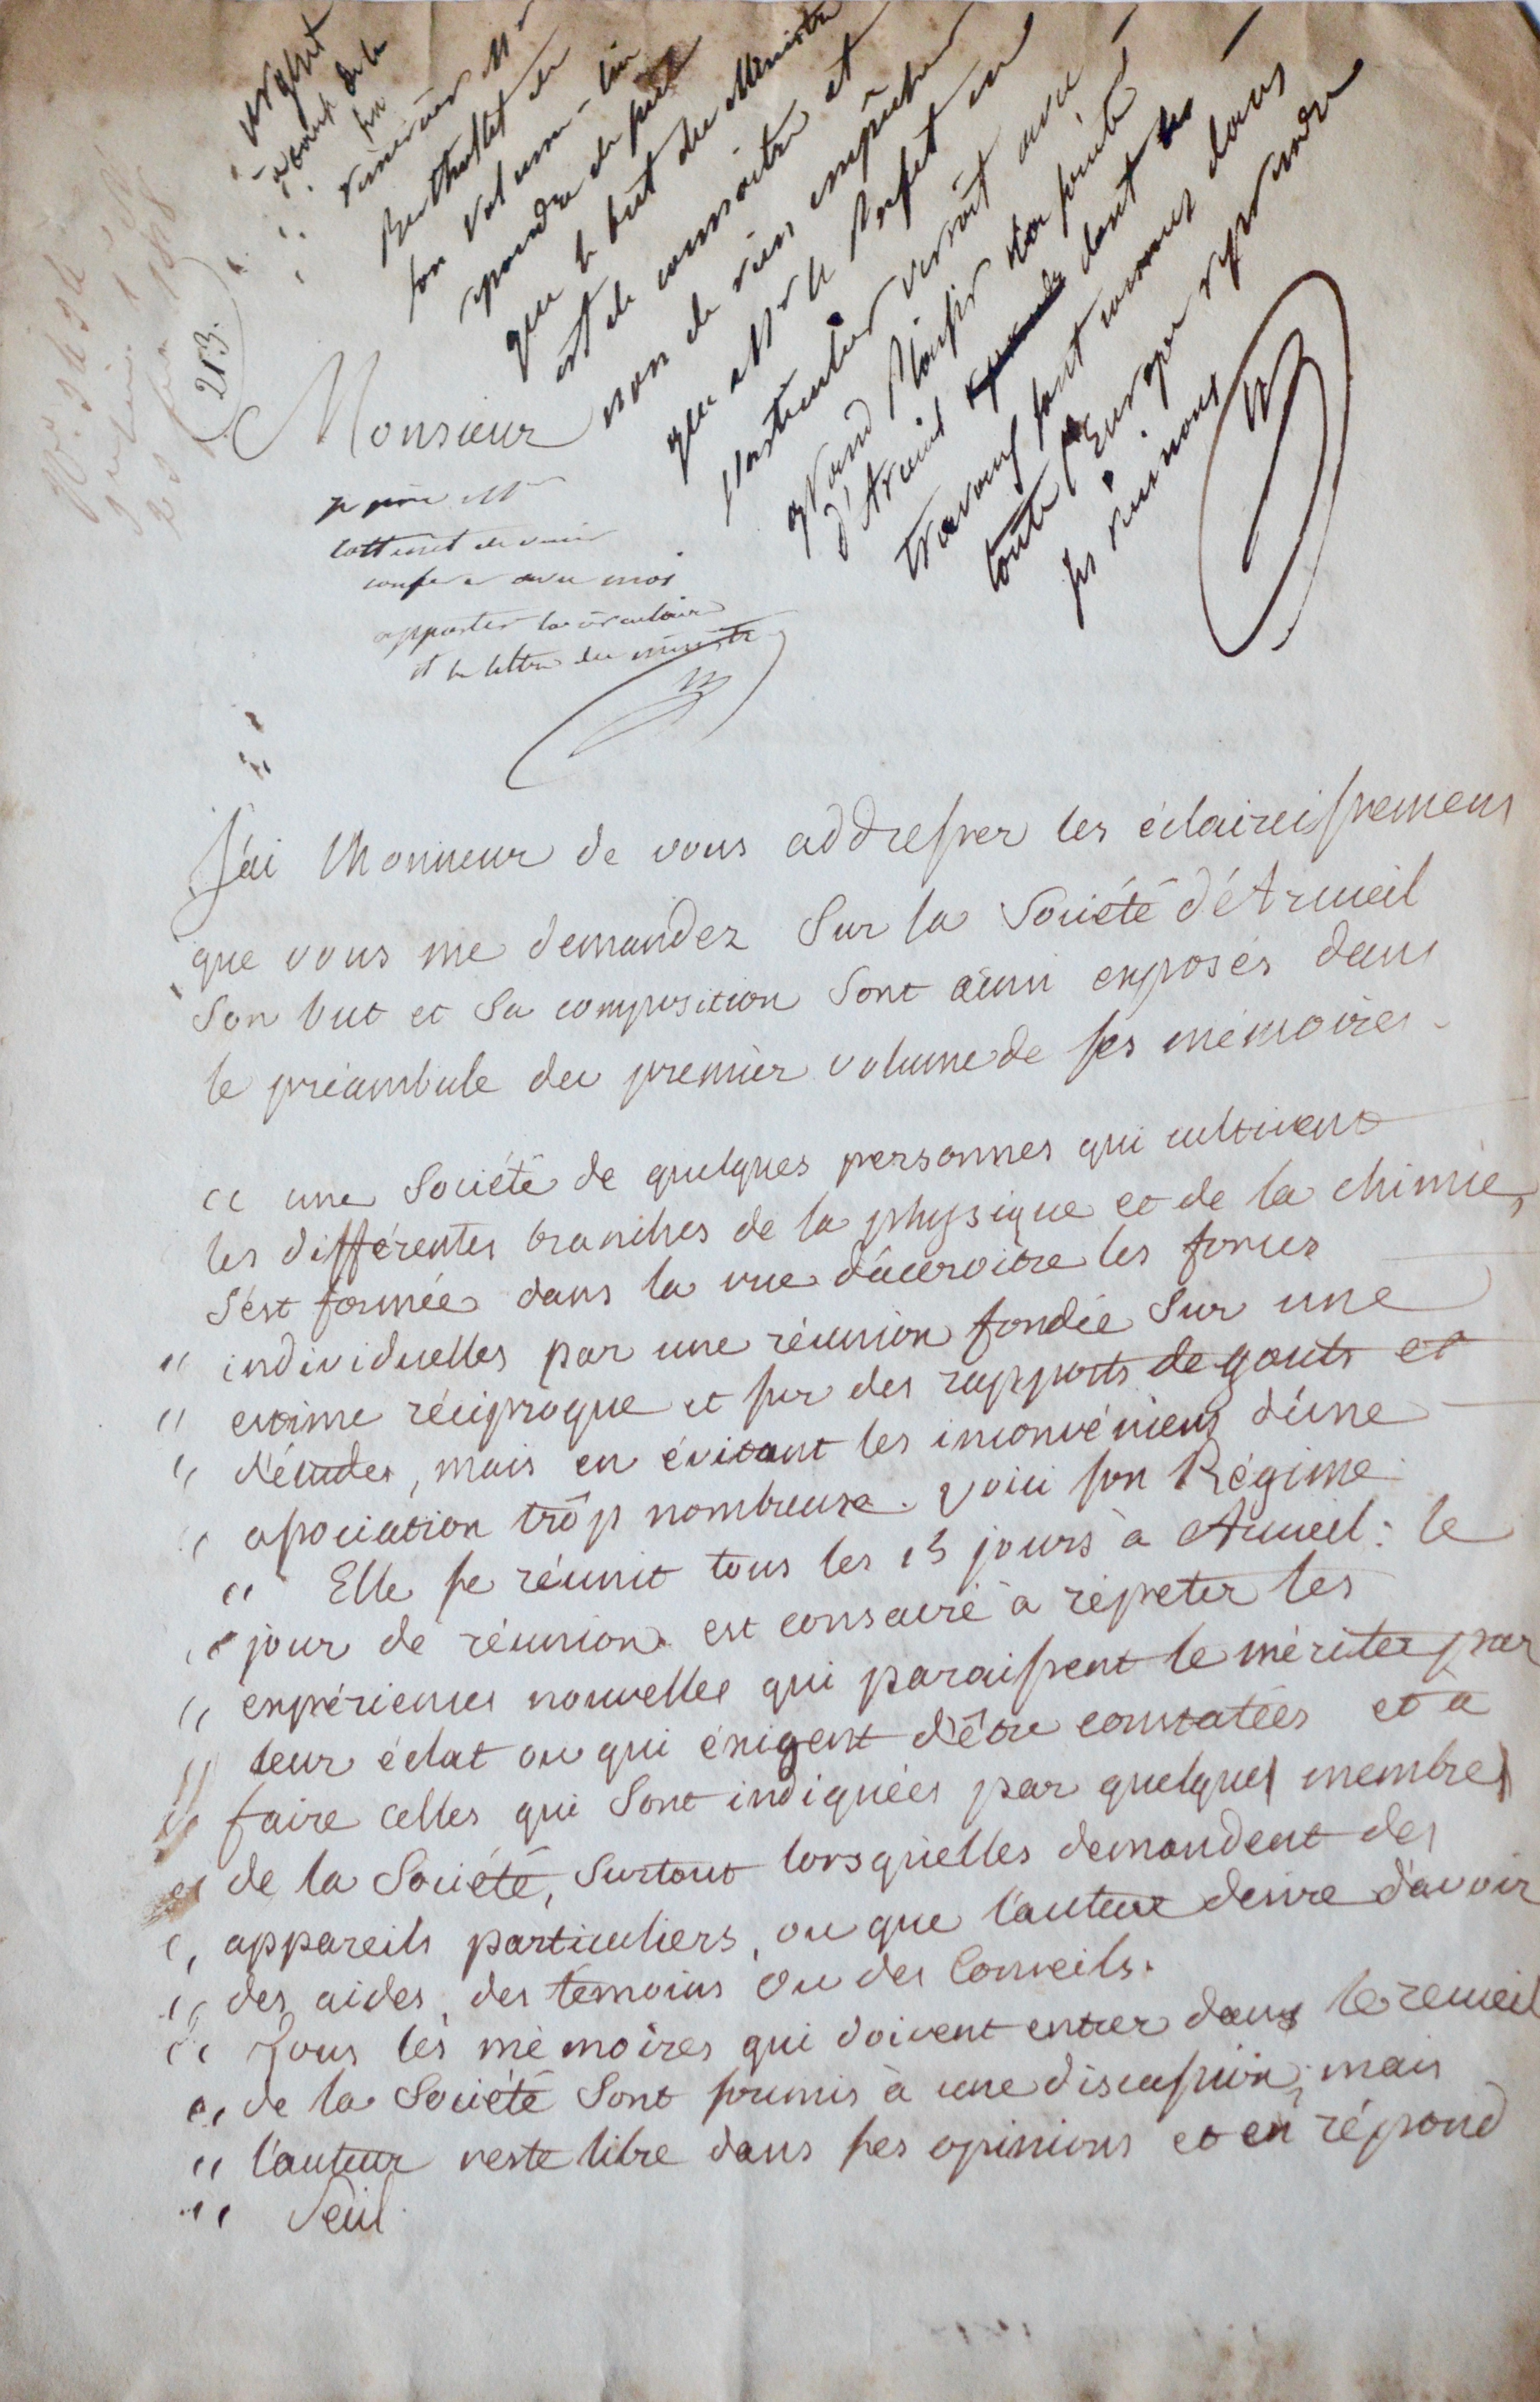 urgent
avant de le
remercier Mr
Berthollet de
son volume - lui
repondre de suite
que le but du Ministre
est de connoitre et
non de rien empêcher
que Mr le Prefet en
particulier verroit avec
grand plaisir la société
d'Arcueil dont les
travaux sont connus dans
toute l'Europe reprendre
ses réunions
213.
Monsieur
je prie Mr
de venir
conferer avec moi
apporter la circulaire
et la lettre du ministre
J'ai l'honneur de vous addresser les éclaircissemens
que vous me demandez Sur la Société d'Arcueil
Son but et Sa composition Sont ainsi exposés dans
le préambule du premier volume de ses mémoires.
" une Société de quelques personnes qui cultivent
les différentes branches de la physique et de la chimie,
S'est formée dans la vue d'accroitre les forces
" individuelles par une réunion fondée Sur une
" estime réciproque et sur des rapports de gouts et
" d'études, mais en évitant les inconvéniens d'une
" association trop nombreuse. Voici son Régime.
" Elle se réunit tous les 15 jours à Arcueil : le
" jour de réunion est consacré à répeter les
" expériences nouvelles qui paraissent le mériter par
" leur éclat ou qui éxigent d'être constatées et à
" faire celles qui Sont indiquées par quelques membres
" de la Société, Surtout lorsquelles demandent des
" appareils particuliers, ou que l'auteur desire d'avoir
" des aides, des témoins ou des Conseils.
" Tous les mémoires qui doivent entrer dans le recueil
" de la Société Sont soumis à une discussion, mais
" l'auteur reste libre dans ses opinions et en répond
" Seul.